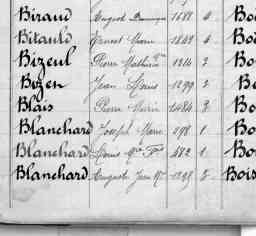 Biraud August 1688 4 Bo
Bitauld Ernest Marie 1849 4 Bo
Bizeul Pierre Mathurin 1214 2 Bo
Bozen Jean Louis 1299 2 Be
Blais Pierre Marie 1484 3 Bo
Blanchard Joseph Marie 298 1 Bo
Blanchard Louis 482 1 Bo
Blanchard Auguste Jean Bois